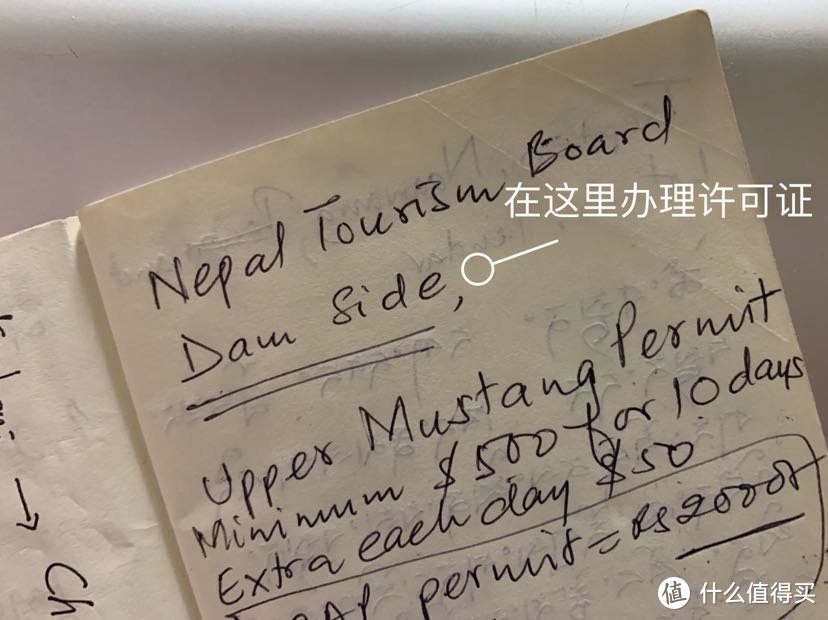 Nepal Tourism Board
在这里办理许可证
Dam Side,
Upper Mustang Permit
Minimum $500 for 10 days
Extra each day $50
permit = Rs 2000
→ Ch
值 什么值得买